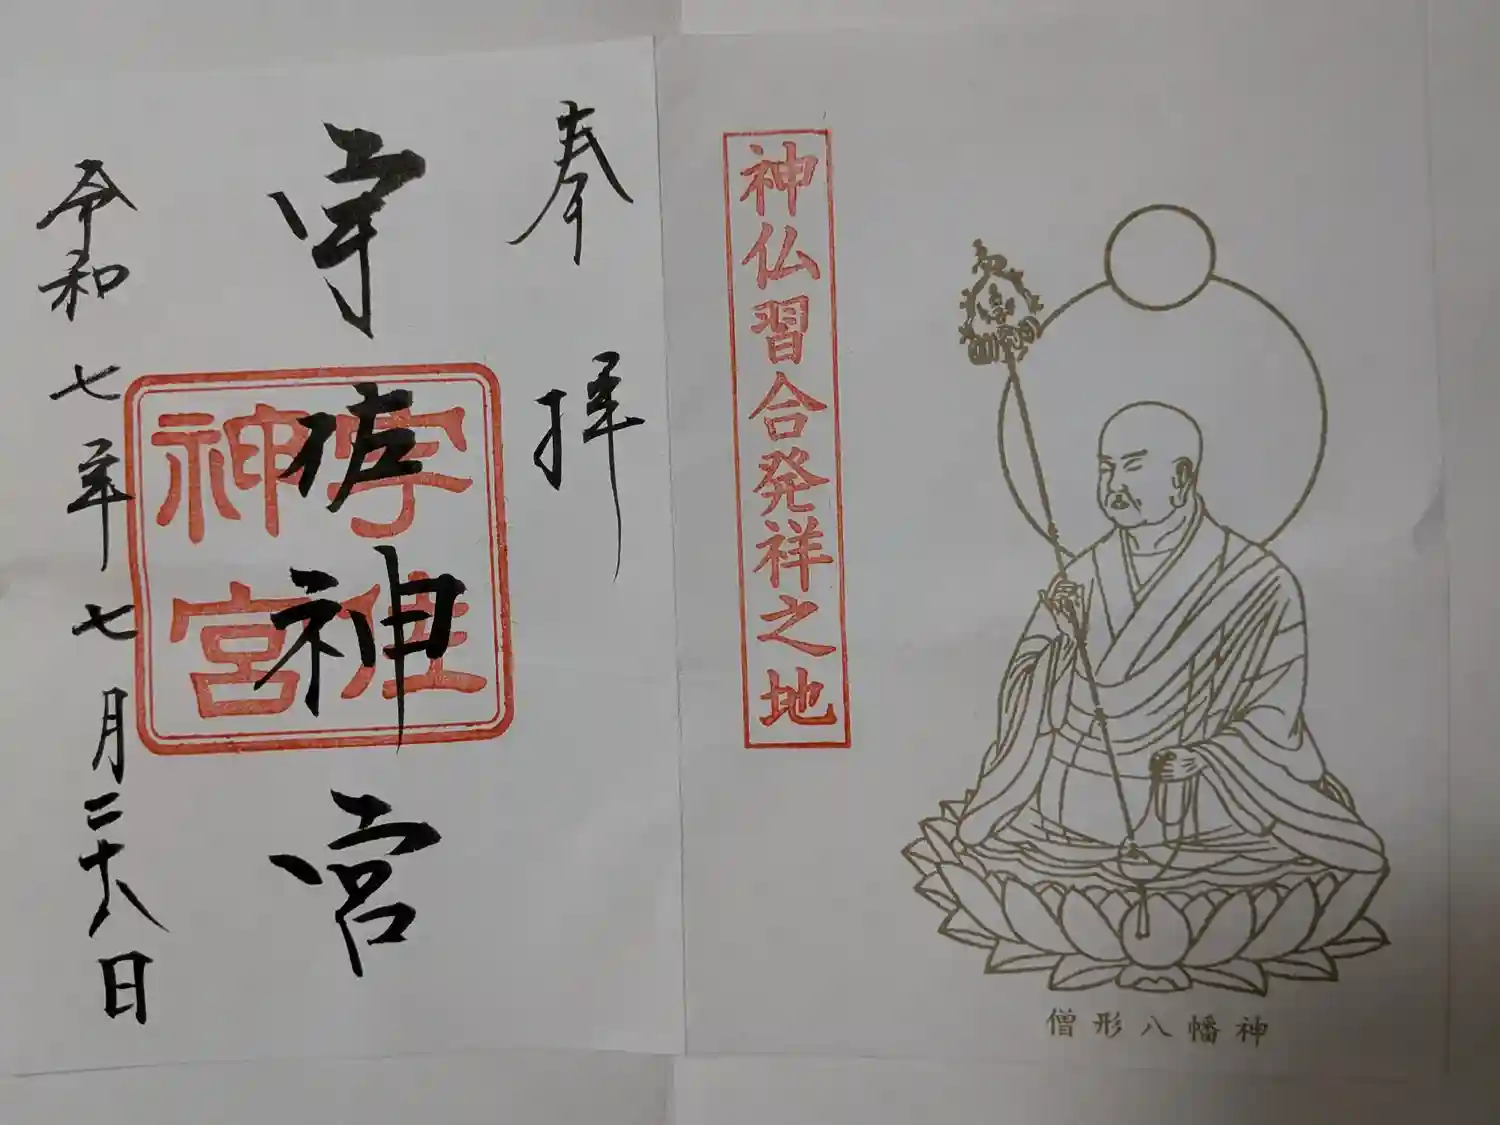 奉拝
宇佐神宮
宇佐
神宮
令和七年七月二十八日
神仏習合発祥之地
僧形八幡神